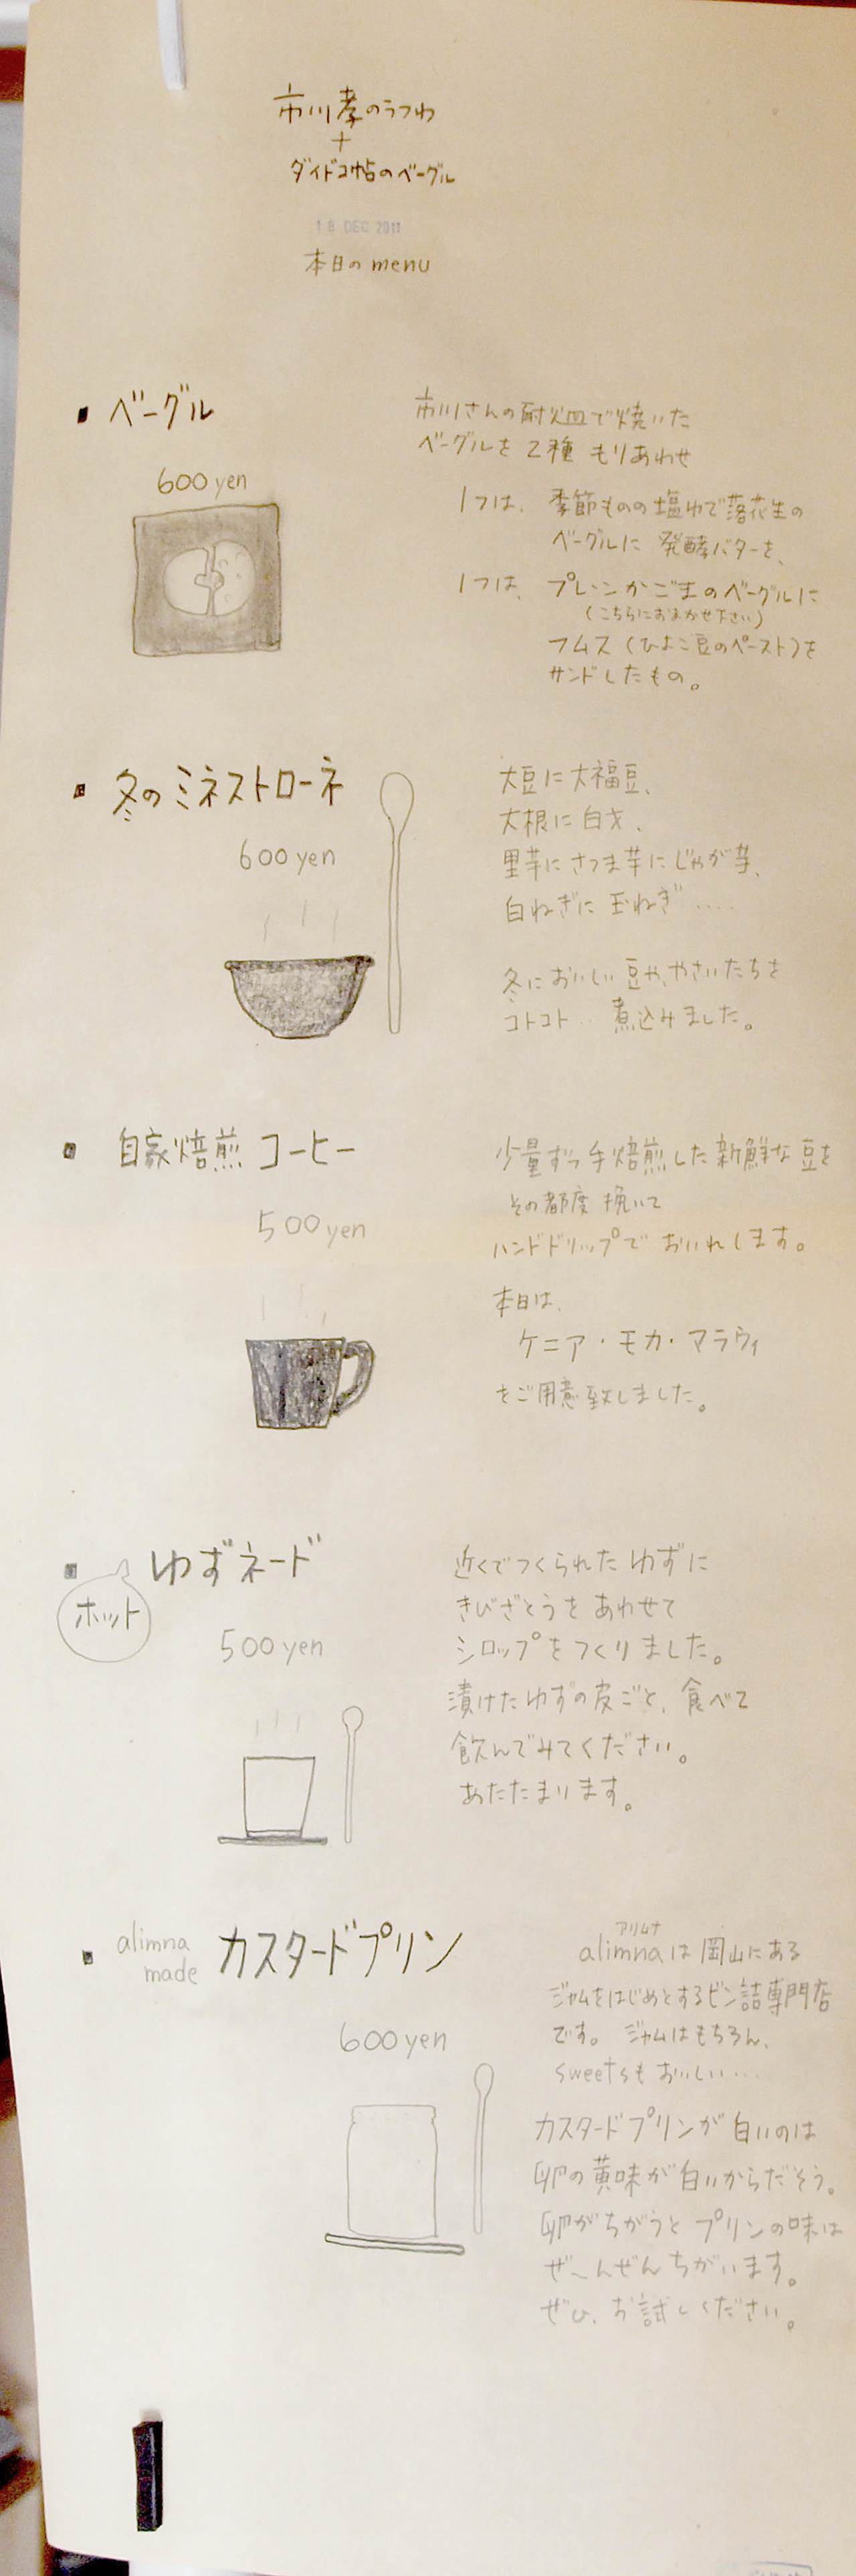 市川孝のうつわ
+
ダイドコ帖のベーグル
18 DEC 2011
本日の menu
ベーグル
600 yen
市川さんの耐火皿で焼いた
ベーグルを 2種 もりあわせ
1つは、季節ものの塩ゆで落花生の
ベーグルに 発酵バターを、
1つは、プレーンかごまのベーグルに
(こちらにおまかせ下さい)
フムス(ひよこ豆のペースト)を
サンドしたもの。
冬のミネストローネ
600 yen
大豆に大福豆、
大根に白才、
里芋にさつま芋にじゃが芋、
白ねぎに玉ねぎ……
冬においしい豆や、やさいたちを
コトコト… 煮込みました。
自家焙煎 コーヒー
500 yen
少量ずつ手焙煎した新鮮な豆を
その都度 挽いて
ハンドドリップで おいれします。
本日は、
ケニア・モカ・マラウィ
をご用意致しました。
ホット
ゆずネード
500 yen
近くでつくられたゆずに
きびざとうをあわせて
シロップをつくりました。
漬けたゆずの皮ごと、食べて
飲んでみてください。
あたたまります。
alimna
made
カスタードプリン
600 yen
アリムナ
alimnaは岡山にある
ジャムをはじめとするビン詰専門店
です。ジャムはもちろん、
sweetsもおいしい…
カスタードプリンが白いのは
卵の黄味が白いからだそう。
卵がちがうとプリンの味は
ぜ〜んぜんちがいます。
ぜひ、お試しください。